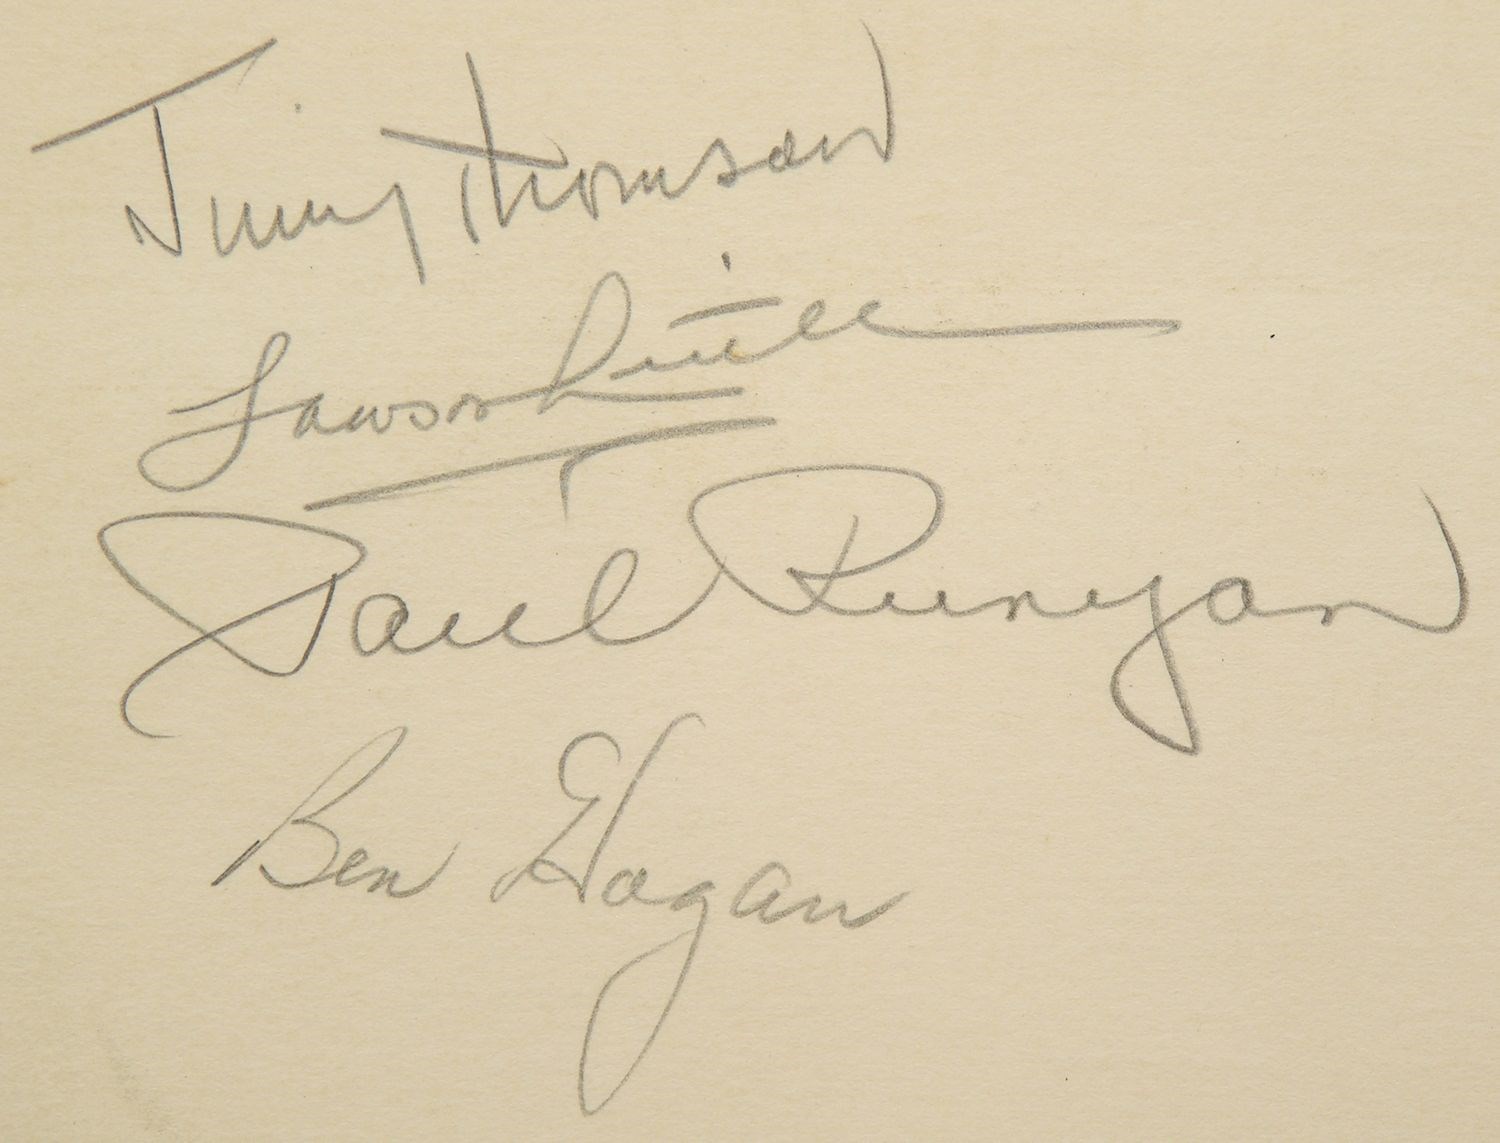 Jimmy Thomson
Lawson Little
Paul Runyan
Ben Hogan